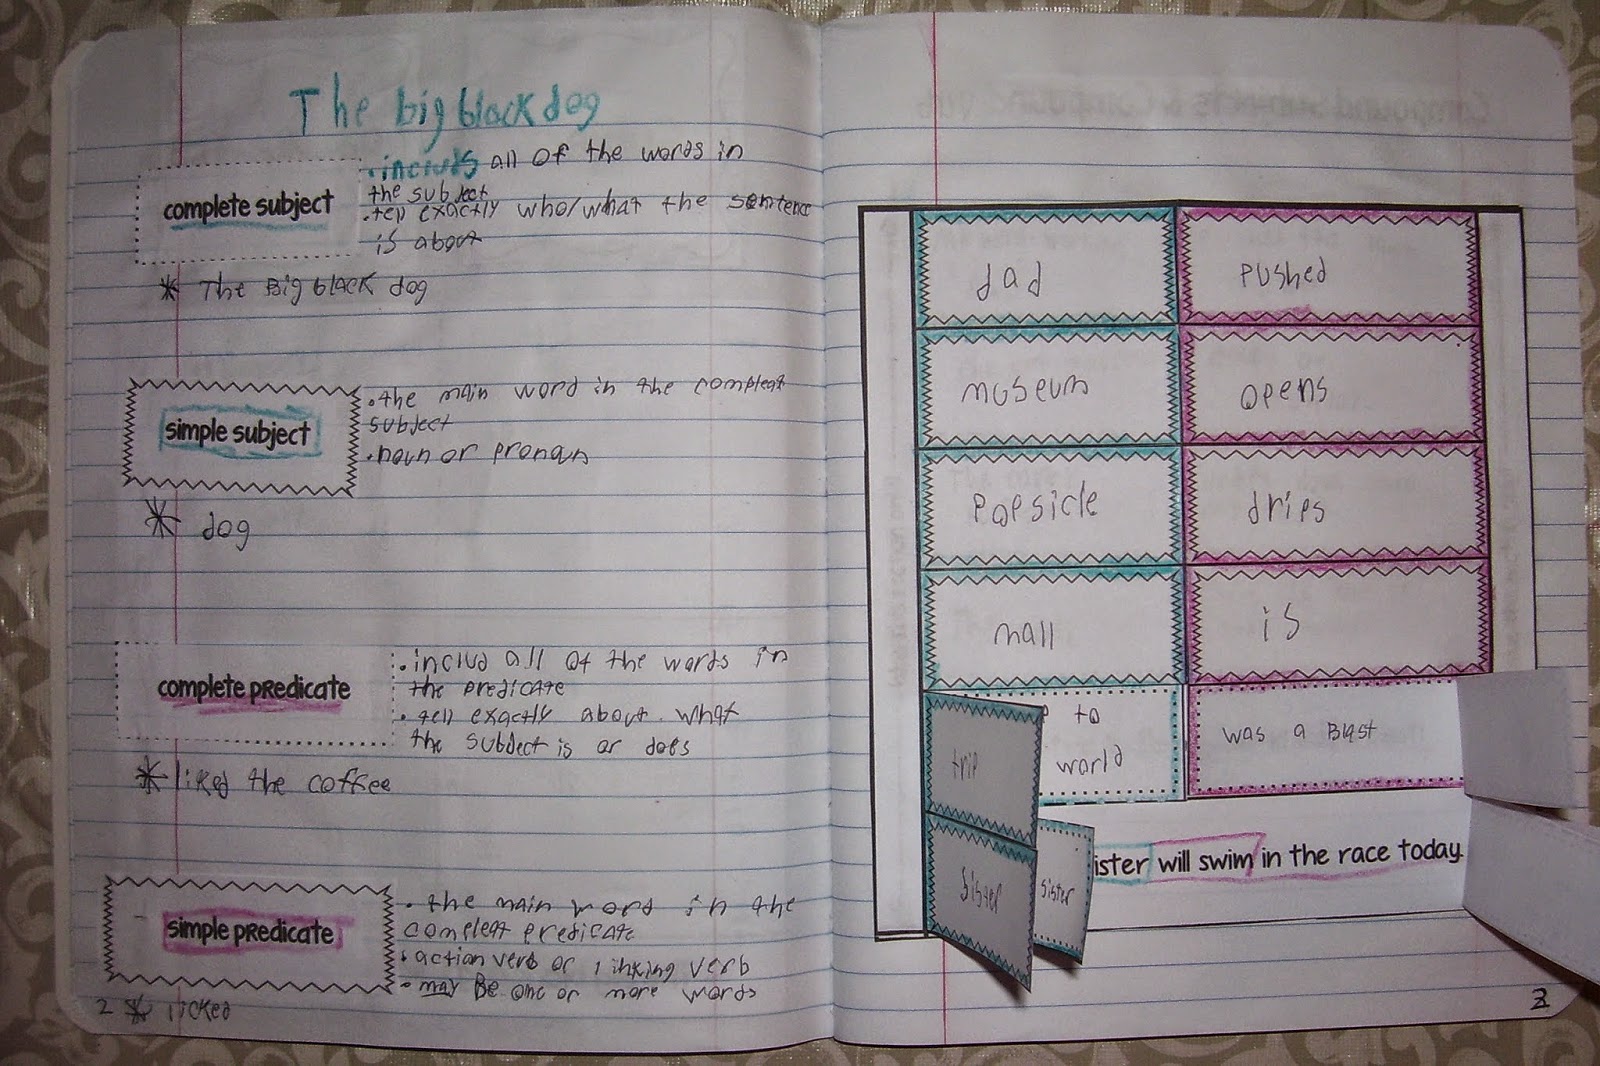 The big black dog
complete subject
• includs all of the words in
the subject
• tell exactly who/what the sentence
is about
* The Big black dog
simple subject
• the main word in the compleat
subject
• noun or pronoun
* dog
complete predicate
• includ all of the words in
the predicate
• tell exactly about what
the subject is or does
* liked the coffee
simple predicate
• the main word in the
compleat predicate
• action verb or linking verb
• may Be one or more words
2 * licked
dad
pushed
museum
opens
Popsicle
drips
mall
is
trip
to
world
was a Blast
sister
sister
ister will swim in the race today.